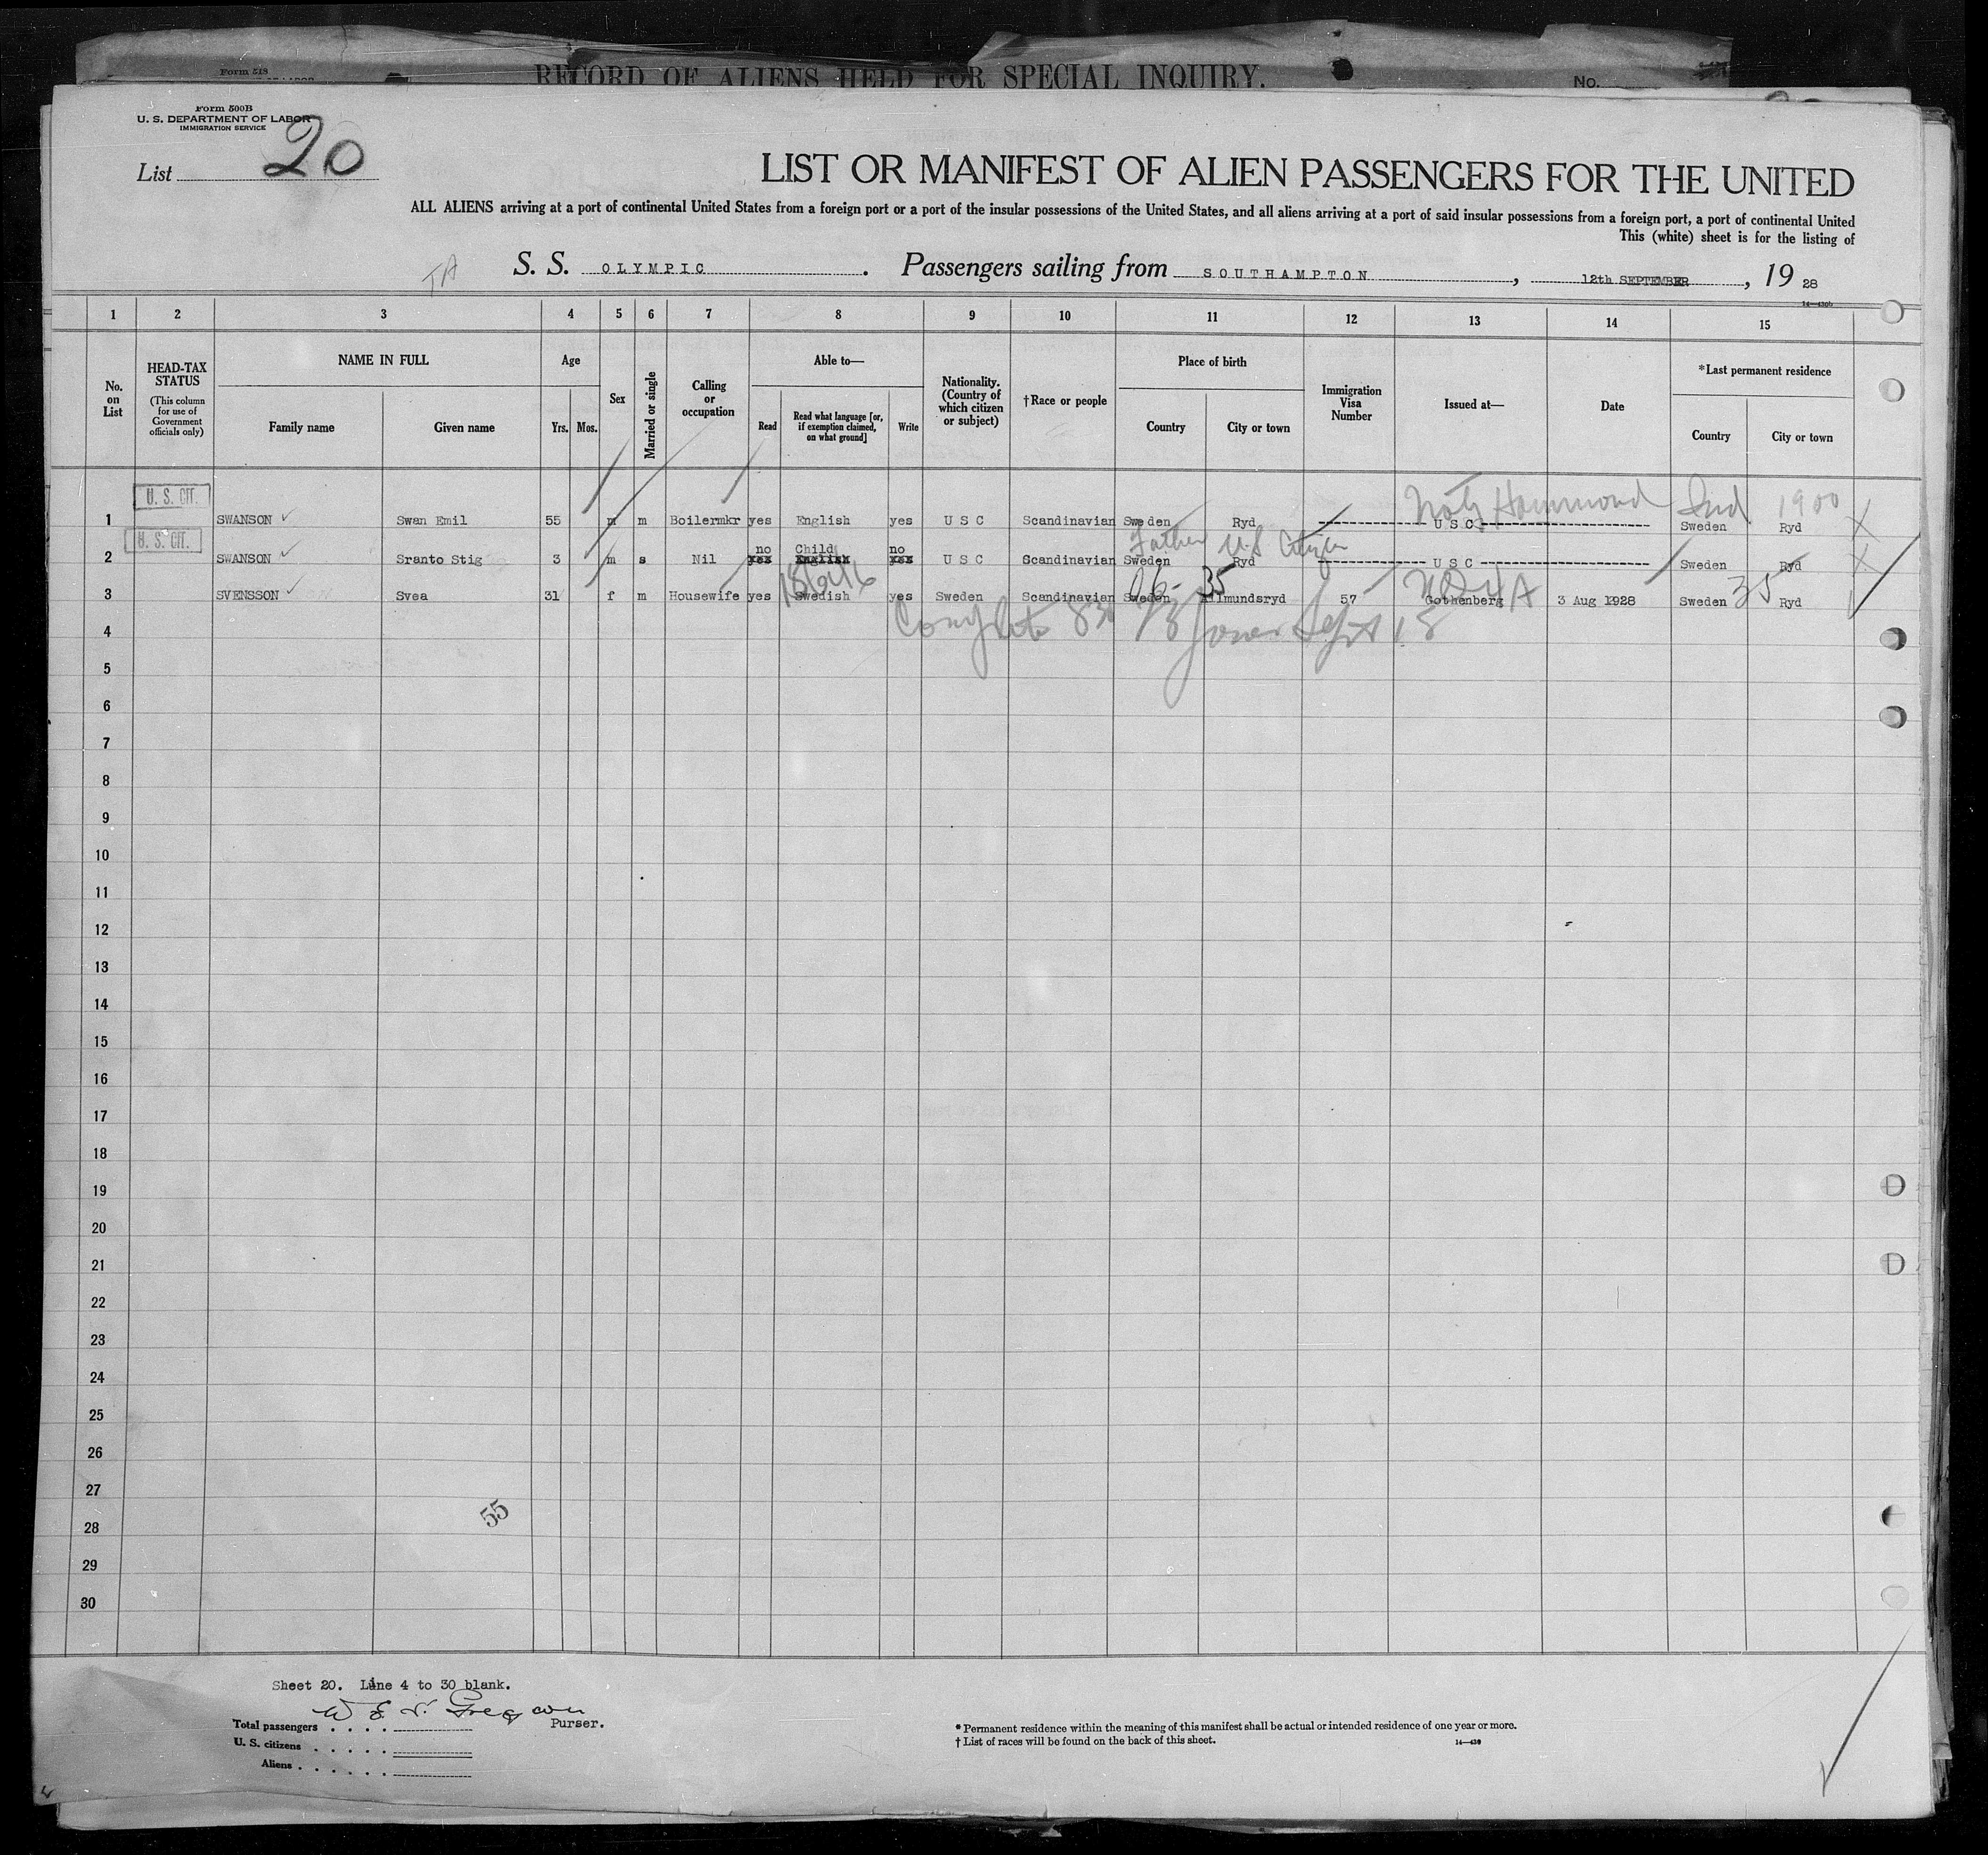 Form 518
RECORD OF ALIENS HELD FOR SPECIAL INQUIRY.
No.
Form 500B
U. S. DEPARTMENT OF LABOR
IMMIGRATION SERVICE
List 20
LIST OR MANIFEST OF ALIEN PASSENGERS FOR THE UNITED
ALL ALIENS arriving at a port of continental United States from a foreign port or a port of the insular possessions of the United States, and all aliens arriving at a port of said insular possessions from a foreign port, a port of continental United
This (white) sheet is for the listing of
TA
S. S. OLYMPIC. Passengers sailing from SOUTHAMPTON, 12th SEPTEMBER, 19 28
14—430b
1 2 3 4 5 6 7 8 9 10 11 12 13 14 15
No. on List
HEAD-TAX STATUS (This column for use of Government officials only)
NAME IN FULL
Family name Given name
Age
Yrs. Mos.
Sex
Married or single
Calling or occupation
Able to—
Read Read what language [or, if exemption claimed, on what ground] Write
Nationality. (Country of which citizen or subject)
†Race or people
Place of birth
Country City or town
Immigration Visa Number
Issued at—
Date
*Last permanent residence
Country City or town
U. S. CIT. Hammond Ind 1900
1 SWANSON Swan Emil 55 m m Boilermkr yes English yes U S C Scandinavian Sweden Ryd U S C Sweden Ryd
U. S. CIT. no Child no Father U.S. Citizen
2 SWANSON Sranto Stig 3 m s Nil yes English yes U S C Scandinavian Sweden Ryd U S C Sweden Ryd
35 35
3 SVENSSON Svea 31 f m Housewife yes Swedish yes Sweden Scandinavian Sweden Almundsryd 57 Gothenberg 3 Aug 1928 Sweden Ryd
Complete 830 Jones Sept 18
4
5
6
7
8
9
10
11
12
13
14
15
16
17
18
19
20
21
22
23
24
25
26
27
55
28
29
30
Sheet 20. Line 4 to 30 blank.
Purser.
Total passengers
U. S. citizens
Aliens
* Permanent residence within the meaning of this manifest shall be actual or intended residence of one year or more.
† List of races will be found on the back of this sheet.
14—430